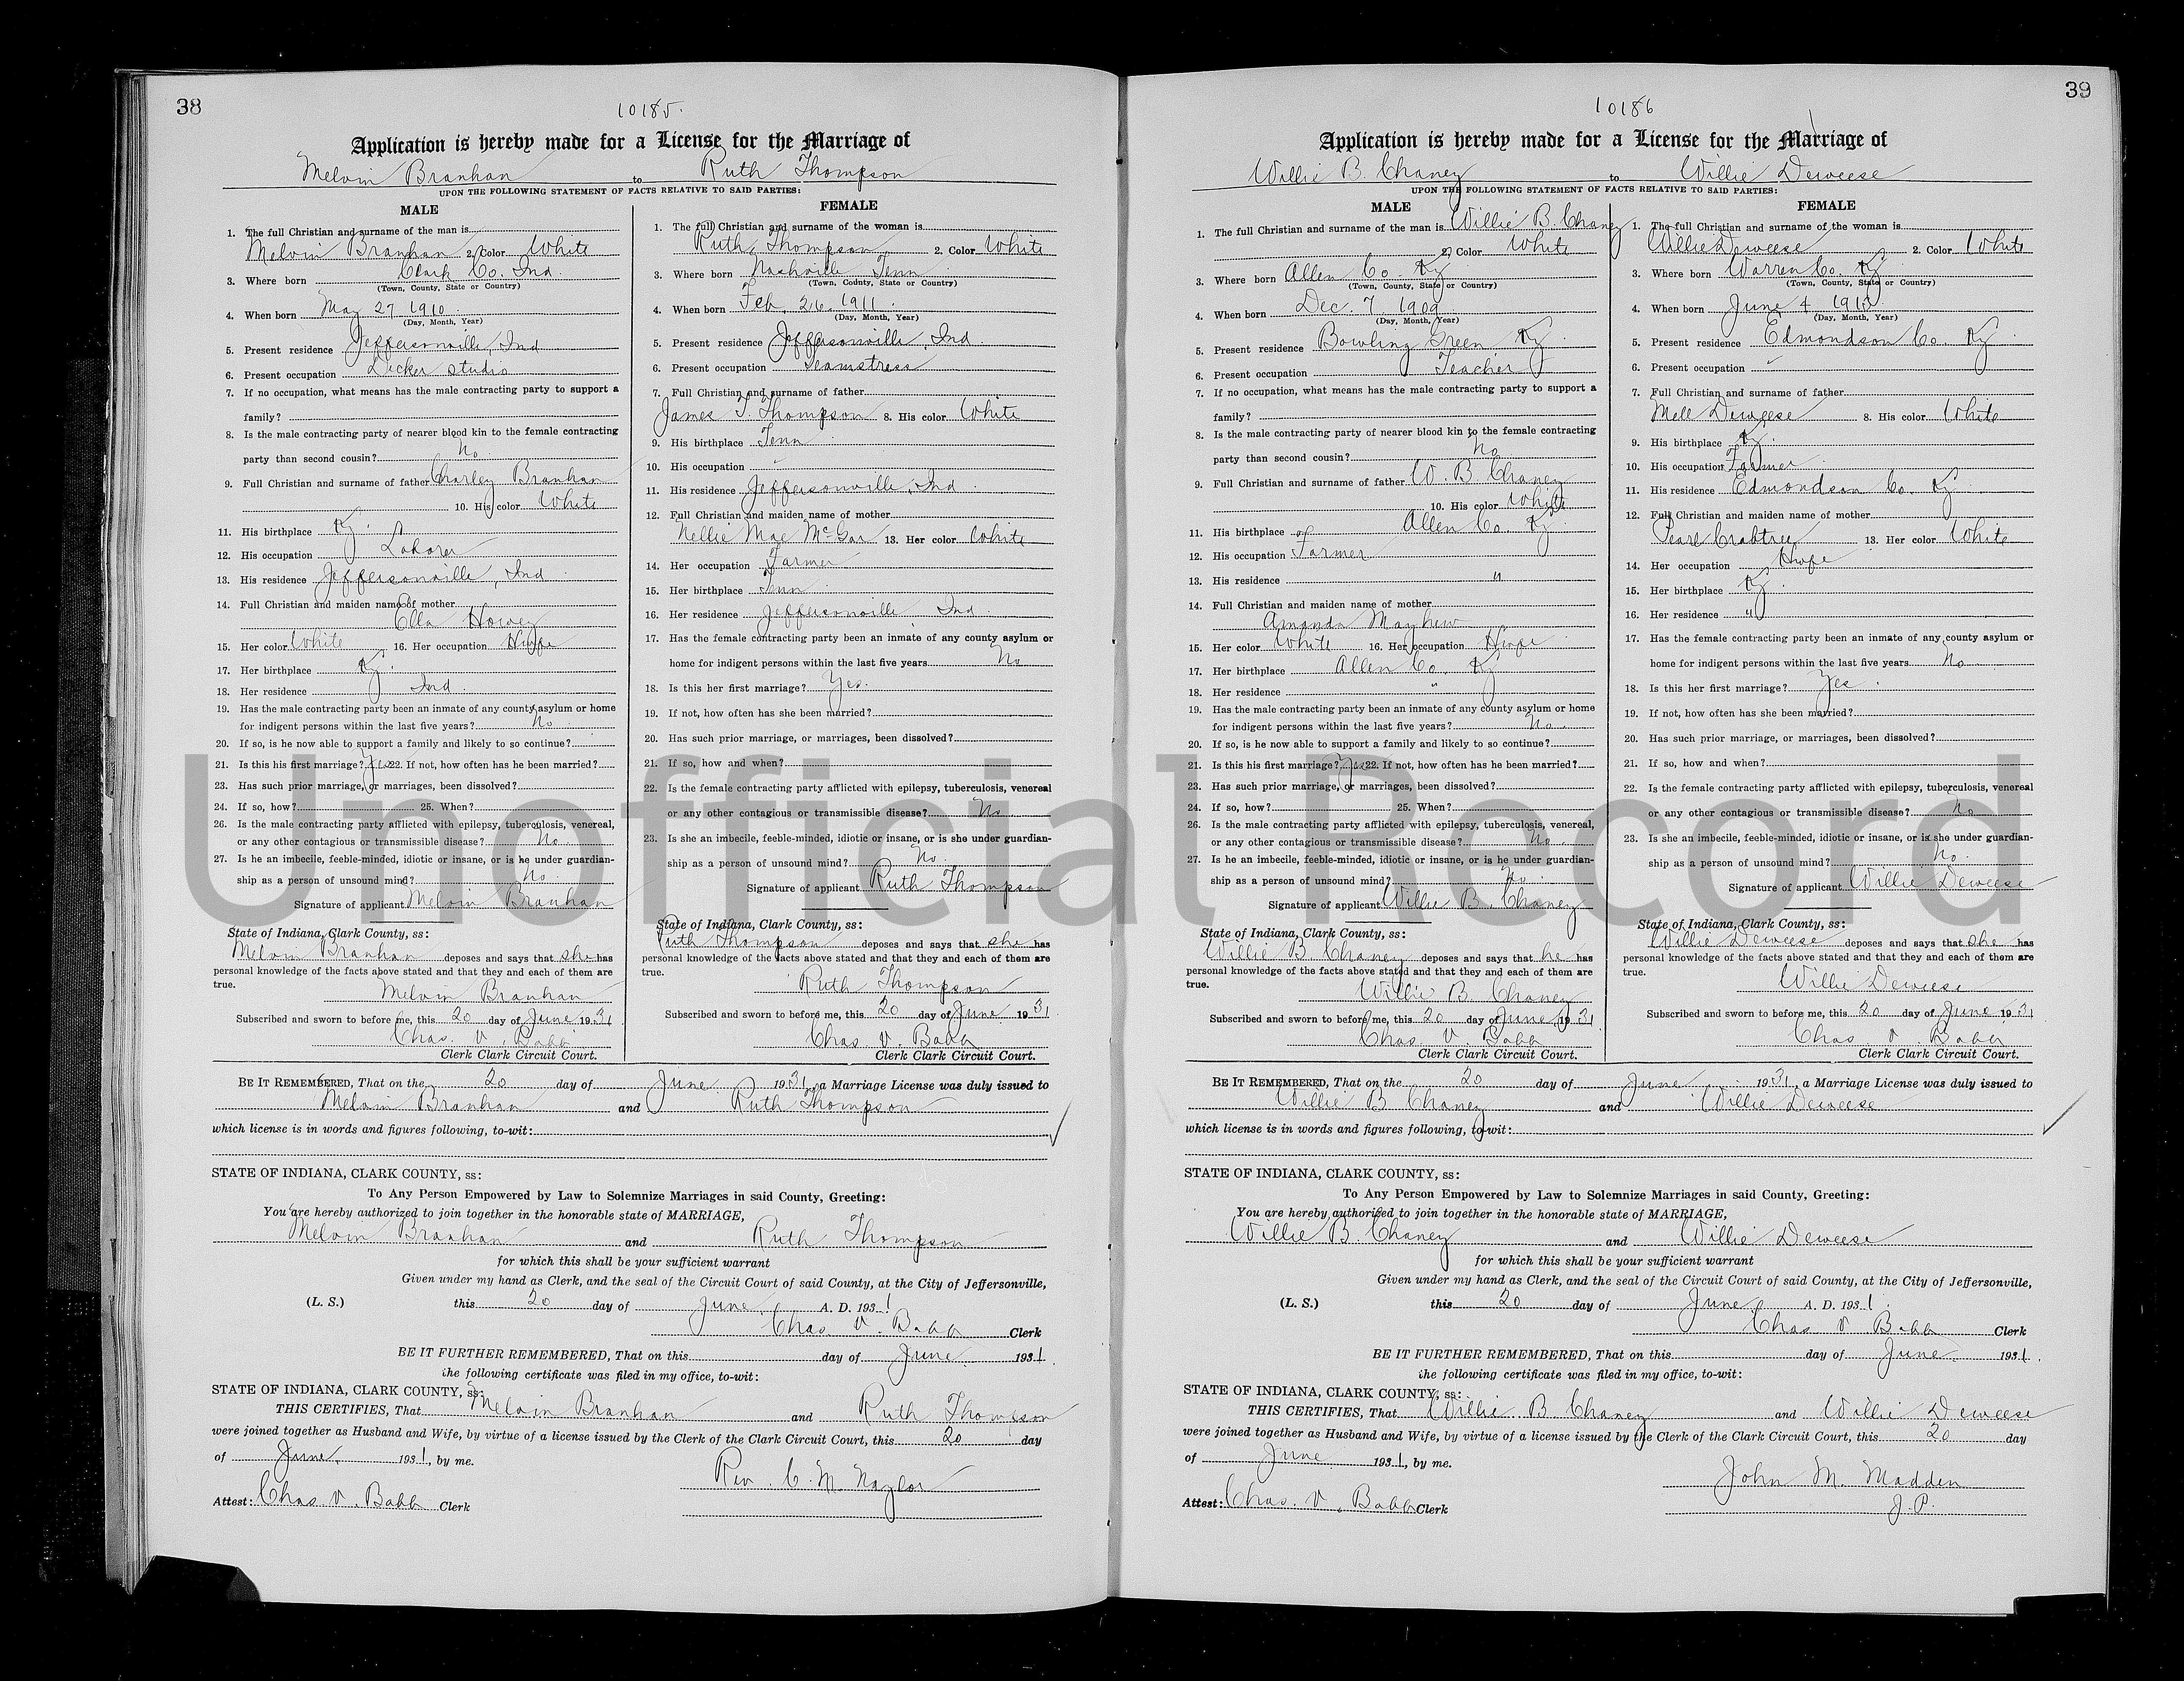 38
10185.
Application is hereby made for a License for the Marriage of
Melvin Branhan to Ruth Thompson
UPON THE FOLLOWING STATEMENT OF FACTS RELATIVE TO SAID PARTIES:
MALE
1. The full Christian and surname of the man is
Melvin Branhan 2. Color White
3. Where born Clark Co. Ind.
(Town, County, State or Country)
4. When born May 27 1910
(Day, Month, Year)
5. Present residence Jeffersonville, Ind
6. Present occupation Decker Studio
7. If no occupation, what means has the male contracting party to support a
family?
8. Is the male contracting party of nearer blood kin to the female contracting
party than second cousin? No
9. Full Christian and surname of father Charley Branhan
10. His color White
11. His birthplace Ky.
12. His occupation Laborer
13. His residence Jeffersonville, Ind
14. Full Christian and maiden name of mother
Ella
15. Her color White 16. Her occupation
17. Her birthplace Ky.
18. Her residence Ind.
19. Has the male contracting party been an inmate of any county asylum or home
for indigent persons within the last five years? No
20. If so, is he now able to support a family and likely to so continue?
21. Is this his first marriage? Yes 22. If not, how often has he been married?
23. Has such prior marriage, or marriages, been dissolved?
24. If so, how? 25. When?
26. Is the male contracting party afflicted with epilepsy, tuberculosis, venereal,
or any other contagious or transmissible disease? No.
27. Is he an imbecile, feeble-minded, idiotic or insane, or is he under guardian-
ship as a person of unsound mind? No.
Signature of applicant Melvin Branhan
State of Indiana, Clark County, ss:
Melvin Branhan deposes and says that she has
personal knowledge of the facts above stated and that they and each of them are
true.
Melvin Branhan
Subscribed and sworn to before me, this 20 day of June 1931
Chas. V. Babb
Clerk Clark Circuit Court.
FEMALE
1. The full Christian and surname of the woman is
Ruth Thompson 2. Color White
3. Where born Nashville Tenn
(Town, County, State or Country)
4. When born Feb. 26. 1911.
(Day, Month, Year)
5. Present residence Jeffersonville, Ind.
6. Present occupation Seamstress
7. Full Christian and surname of father
James T. Thompson 8. His color White
9. His birthplace Tenn
10. His occupation "
11. His residence Jeffersonville, Ind.
12. Full Christian and maiden name of mother
Nellie Mae McGar 13. Her color White
14. Her occupation Farmer
15. Her birthplace Tenn
16. Her residence Jeffersonville Ind.
17. Has the female contracting party been an inmate of any county asylum or
home for indigent persons within the last five years No
18. Is this her first marriage? Yes.
19. If not, how often has she been married?
20. Has such prior marriage, or marriages, been dissolved?
21. If so, how and when?
22. Is the female contracting party afflicted with epilepsy, tuberculosis, venereal
or any other contagious or transmissible disease? No
23. Is she an imbecile, feeble-minded, idiotic or insane, or is she under guardian-
ship as a person of unsound mind? No.
Signature of applicant Ruth Thompson
State of Indiana, Clark County, ss:
Ruth Thompson deposes and says that she has
personal knowledge of the facts above stated and that they and each of them are
true.
Ruth Thompson
Subscribed and sworn to before me, this 20 day of June 1931
Chas. V. Babb
Clerk Clark Circuit Court.
BE IT REMEMBERED, That on the 20 day of June 1931, a Marriage License was duly issued to
Melvin Branhan and Ruth Thompson
which license is in words and figures following, to-wit:
STATE OF INDIANA, CLARK COUNTY, ss:
To Any Person Empowered by Law to Solemnize Marriages in said County, Greeting:
You are hereby authorized to join together in the honorable state of MARRIAGE,
Melvin Branhan and Ruth Thompson
for which this shall be your sufficient warrant
Given under my hand as Clerk, and the seal of the Circuit Court of said County, at the City of Jeffersonville,
(L. S.) this 20 day of June A. D. 1931
Chas. V. Babb Clerk
BE IT FURTHER REMEMBERED, That on this day of June 1931.
the following certificate was filed in my office, to-wit:
STATE OF INDIANA, CLARK COUNTY, ss:
THIS CERTIFIES, That Melvin Branhan and Ruth Thompson
were joined together as Husband and Wife, by virtue of a license issued by the Clerk of the Clark Circuit Court, this 20 day
of June, 1931, by me.
Rev. C. M. Naylor
Attest: Chas. V. Babb Clerk
39
10186
Application is hereby made for a License for the Marriage of
Willie B. Chaney to Willie Deweese
UPON THE FOLLOWING STATEMENT OF FACTS RELATIVE TO SAID PARTIES:
MALE
1. The full Christian and surname of the man is Willie B. Chaney
2. Color White
3. Where born Allen Co. Ky
(Town, County, State or Country)
4. When born Dec. 7. 1909
(Day, Month, Year)
5. Present residence Bowling Green Ky.
6. Present occupation Teacher
7. If no occupation, what means has the male contracting party to support a
family?
8. Is the male contracting party of nearer blood kin to the female contracting
party than second cousin? No
9. Full Christian and surname of father W. B. Chaney
10. His color White
11. His birthplace of Allen Co. Ky.
12. His occupation Farmer
13. His residence "
14. Full Christian and maiden name of mother
Amanda Mayhew
15. Her color White 16. Her occupation
17. Her birthplace Allen Co. Ky
18. Her residence "
19. Has the male contracting party been an inmate of any county asylum or home
for indigent persons within the last five years? No.
20. If so, is he now able to support a family and likely to so continue?
21. Is this his first marriage? Yes 22. If not, how often has he been married?
23. Has such prior marriage, or marriages, been dissolved?
24. If so, how? 25. When?
26. Is the male contracting party afflicted with epilepsy, tuberculosis, venereal,
or any other contagious or transmissible disease? No.
27. Is he an imbecile, feeble-minded, idiotic or insane, or is he under guardian-
ship as a person of unsound mind? No.
Signature of applicant Willie B. Chaney
State of Indiana, Clark County, ss:
Willie B. Chaney deposes and says that he has
personal knowledge of the facts above stated and that they and each of them are
true.
Willie B. Chaney
Subscribed and sworn to before me, this 20 day of June, 1931
Chas V. Babb
Clerk Clark Circuit Court.
FEMALE
1. The full Christian and surname of the woman is
Willie Deweese 2. Color White
3. Where born Warren Co. Ky
(Town, County, State or Country)
4. When born June 4
(Day, Month, Year)
5. Present residence Edmondson Co. Ky
6. Present occupation "
7. Full Christian and surname of father
Mell Deweese 8. His color White
9. His birthplace Ky.
10. His occupation Farmer
11. His residence Edmondson Co. Ky.
12. Full Christian and maiden name of mother
Pearl Crabtree 13. Her color White
14. Her occupation
15. Her birthplace Ky.
16. Her residence "
17. Has the female contracting party been an inmate of any county asylum or
home for indigent persons within the last five years No
18. Is this her first marriage? Yes.
19. If not, how often has she been married?
20. Has such prior marriage, or marriages, been dissolved?
21. If so, how and when?
22. Is the female contracting party afflicted with epilepsy, tuberculosis, venereal
or any other contagious or transmissible disease? No
23. Is she an imbecile, feeble-minded, idiotic or insane, or is she under guardian-
ship as a person of unsound mind? No.
Signature of applicant Willie Deweese
State of Indiana, Clark County, ss:
Willie Deweese deposes and says that she has
personal knowledge of the facts above stated and that they and each of them are
true.
Willie Deweese
Subscribed and sworn to before me, this 20 day of June 1931
Chas V Babb
Clerk Clark Circuit Court.
BE IT REMEMBERED, That on the 20 day of June 1931, a Marriage License was duly issued to
Willie B Chaney and Willie Deweese
which license is in words and figures following, to-wit:
STATE OF INDIANA, CLARK COUNTY, ss:
To Any Person Empowered by Law to Solemnize Marriages in said County, Greeting:
You are hereby authorized to join together in the honorable state of MARRIAGE,
Willie B. Chaney and Willie Deweese
for which this shall be your sufficient warrant
Given under my hand as Clerk, and the seal of the Circuit Court of said County, at the City of Jeffersonville,
(L. S.) this 20 day of June A. D. 1931.
Chas V Babb Clerk
BE IT FURTHER REMEMBERED, That on this day of June 1931.
the following certificate was filed in my office, to-wit:
STATE OF INDIANA, CLARK COUNTY, ss:
THIS CERTIFIES, That Willie B Chaney and Willie Deweese
were joined together as Husband and Wife, by virtue of a license issued by the Clerk of the Clark Circuit Court, this 20 day
of June 1931, by me.
John M. Madden
J. P.
Attest: Chas. V. Babb Clerk
Unofficial Record